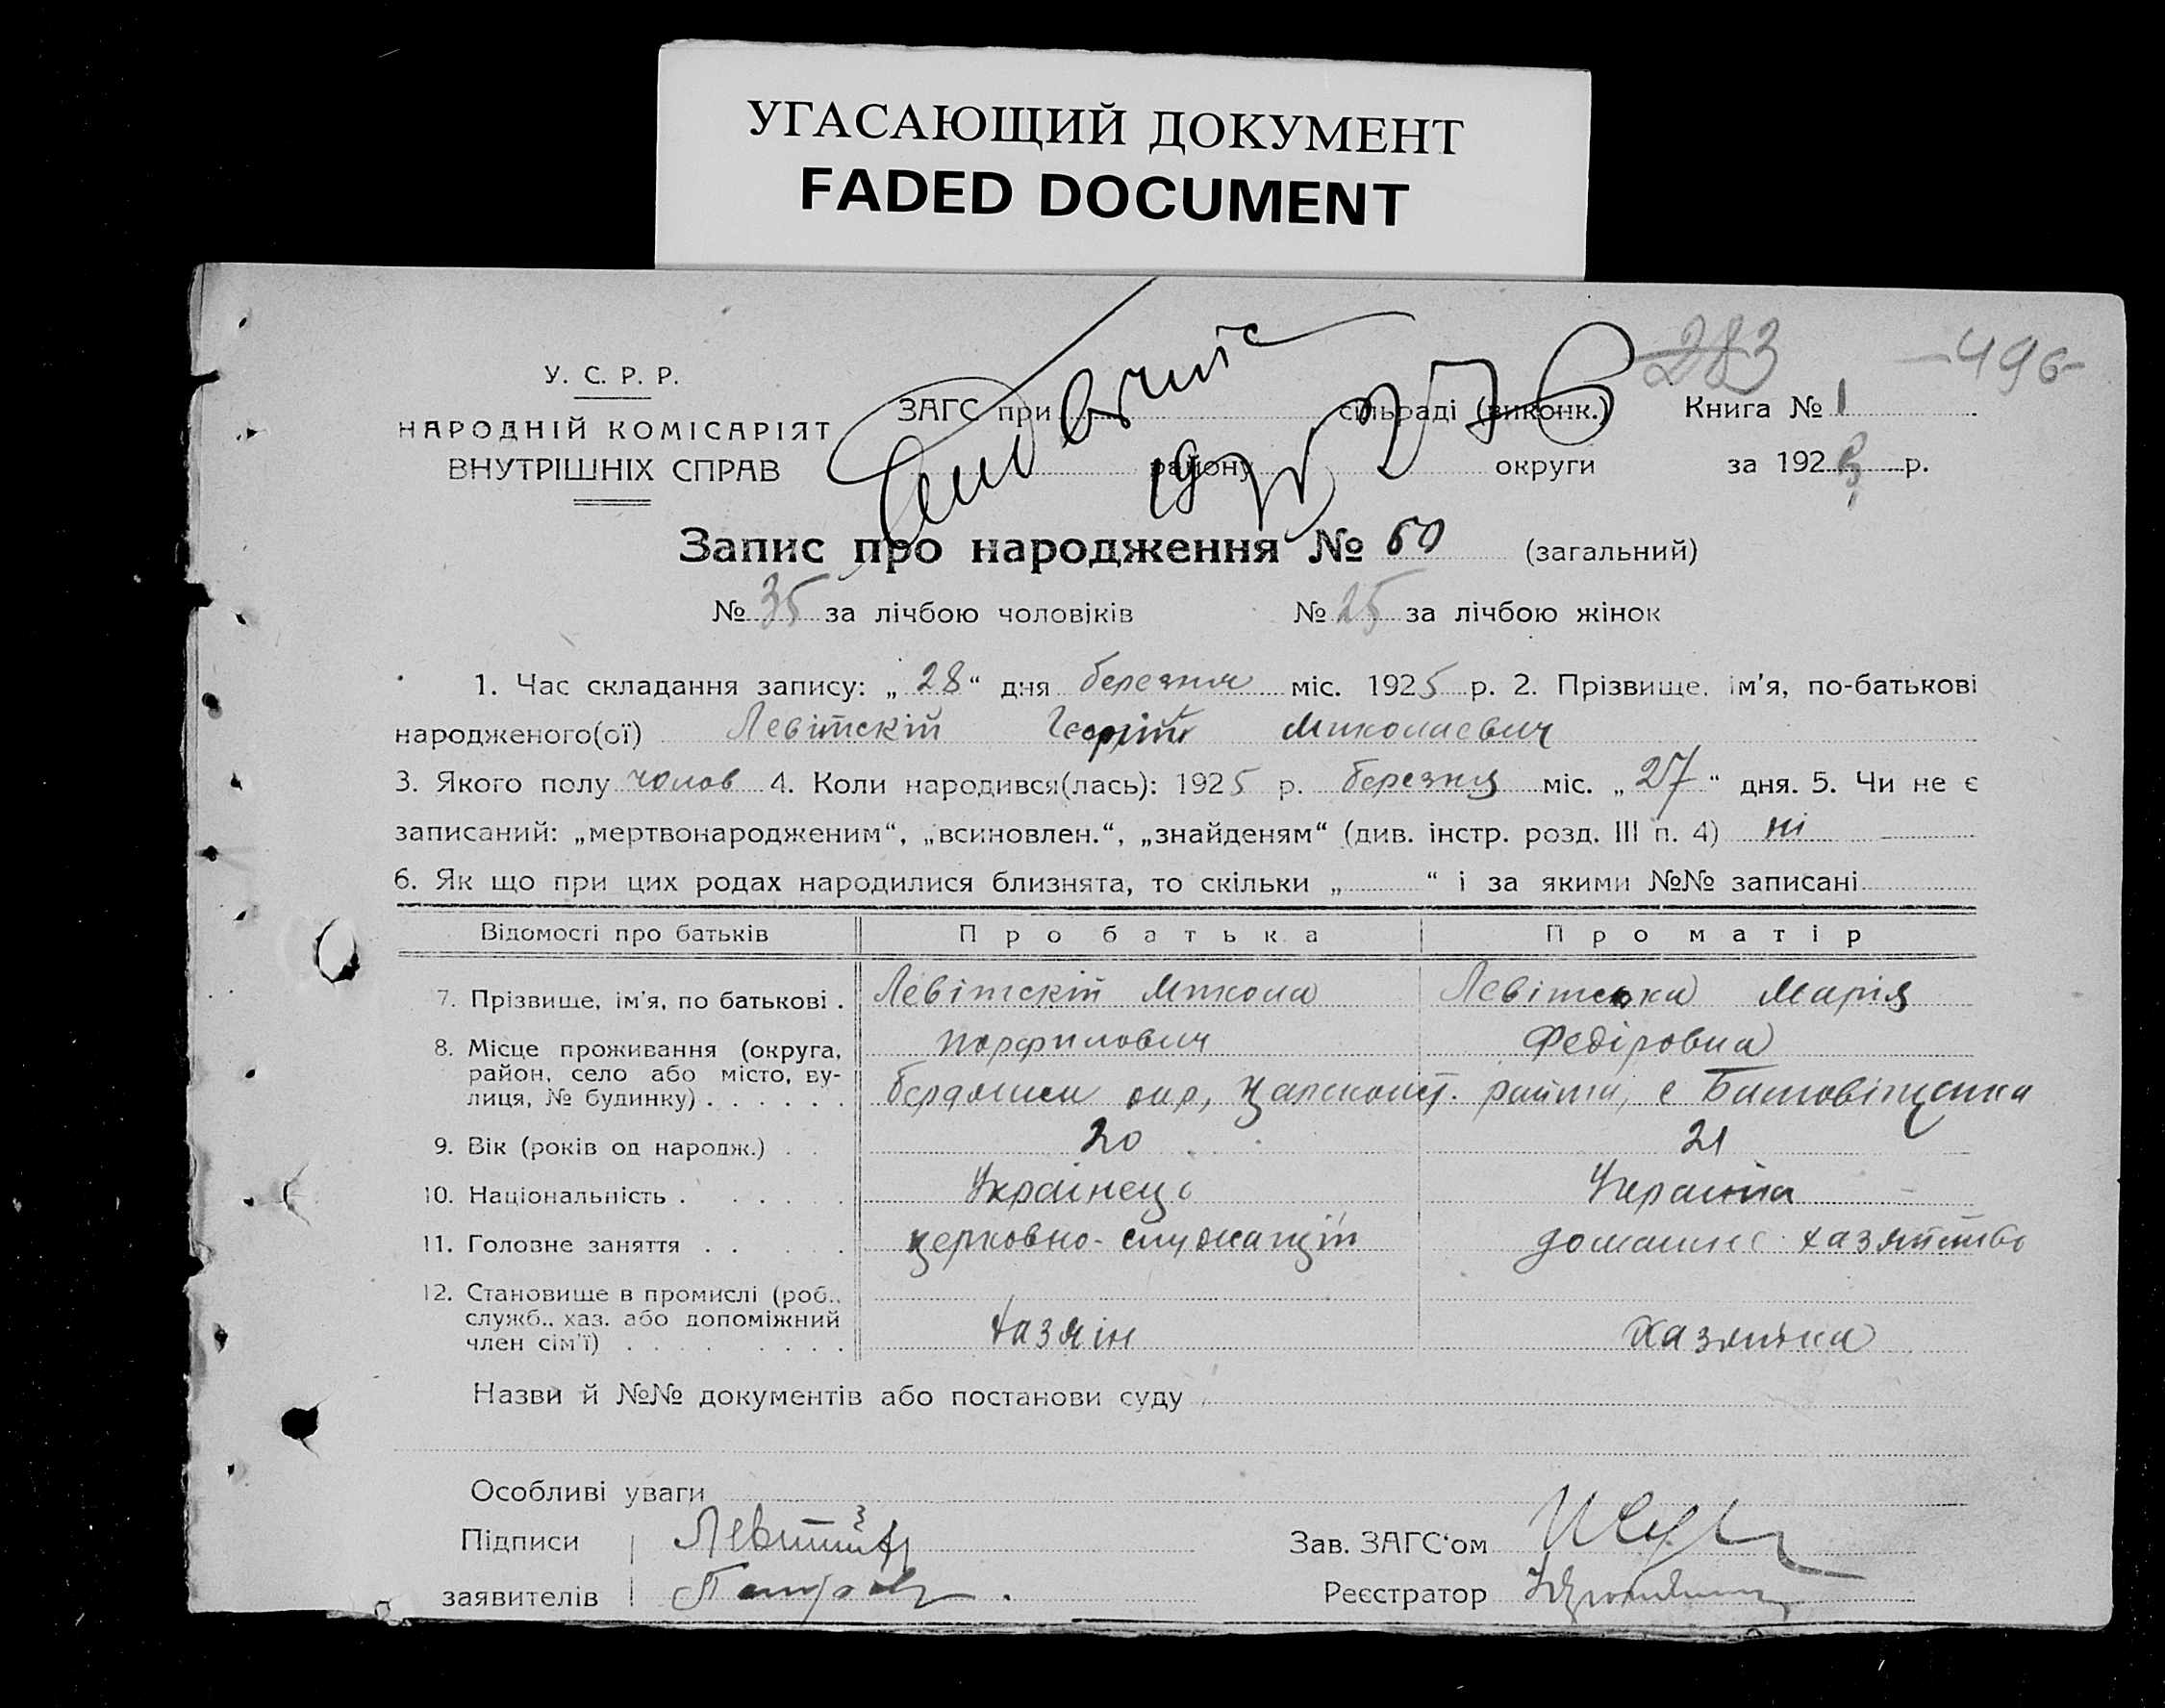 УГАСАЮЩИЙ ДОКУМЕНТ
FADED DOCUMENT
283 -496-
У. С. Р. Р.
НАРОДНІЙ КОМІСАРІЯТ
ВНУТРІШНІХ СПРАВ
ЗАГС при сільраді (виконк.) Книга № 1
району округи за 192 р.
276
Запис про народження № 60 (загальний)
№ 35 за лічбою чоловіків № 25 за лічбою жінок
1. Час складання запису: „ 28 “ дня березня міс. 1925 р. 2. Прізвище, ім'я, по-батькові
народженого(ої) Левітскій Георгій Миколаевич
3. Якого полу чолов 4. Коли народився(лась): 1925 р. березня міс. „ 27 “ дня. 5. Чи не є
записаний: „мертвонародженим“, „всиновлен.“, „знайденям“ (див. інстр. розд. III п. 4) ні
6. Як що при цих родах народилися близнята, то скільки „ “ і за якими №№ записані
Відомості про батьків Про батька Про матір
7. Прізвище, ім'я, по батькові . Левітскій Микола Левітська Марія
8. Місце проживання (округа, Порфилович Федіровна
район, село або місто, ву-
лиця, № будинку) . . . . . . окр, района, с
9. Вік (років од народж.) . . 20 21
10. Національність . . . . . Українець Українка
11. Головне заняття . . . . . церковно-служащій домашнє хазяйство
12. Становище в промислі (роб.,
служб., хаз. або допоміжний
член сім'ї) . . . . . . . . Хазяін Хазяйка
Назви й №№ документів або постанови суду
Особливі уваги
Підписи Зав. ЗАГС'ом
заявителів Реєстратор